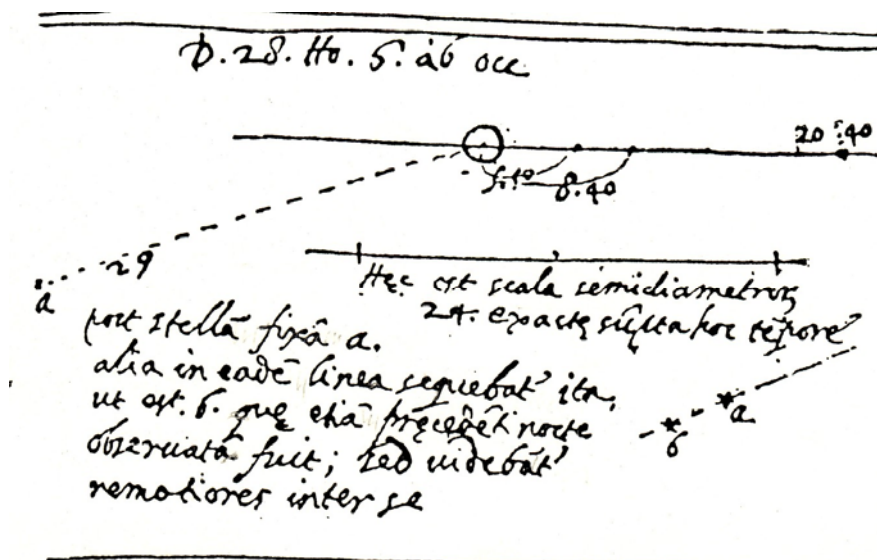 D. 28. Ho. 5. ab occ
20 : 40
5.10
8.40
29
a
Hęc est scala semidiametrorũ
24. exactę sũpta hoc tẽpore
post stellã fixã a.
alia in eadẽ linea sequebat' ita,
ut est. b. quę etiã pręcedẽti nocte
obseruata fuit; sed uidebãt'
remotiores inter se
a
b